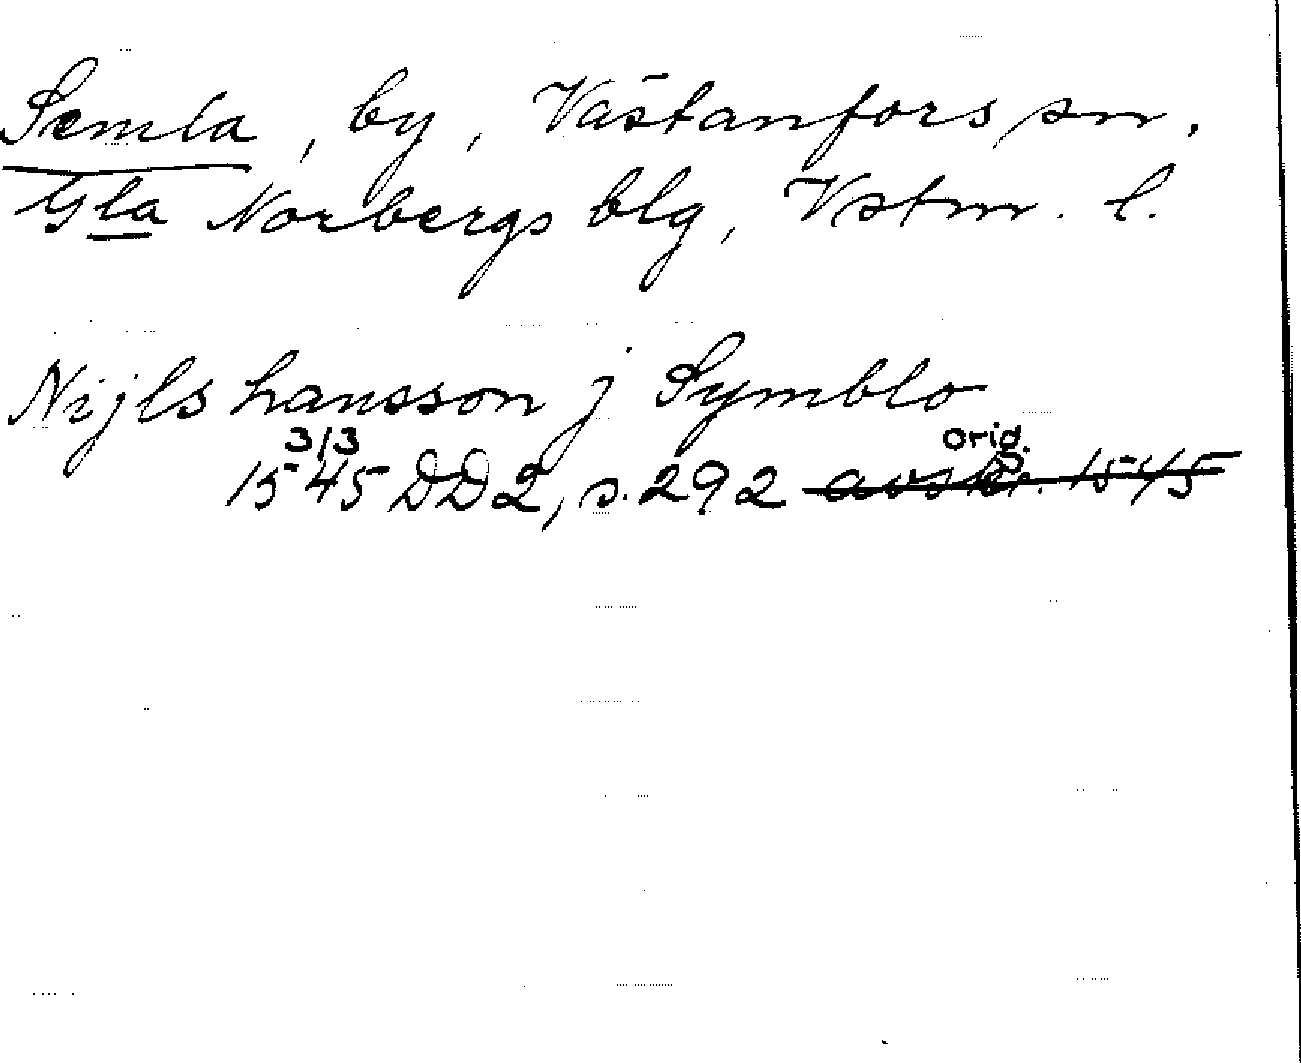 Semla, by, Västanfors sn.
Gla Norbergs blg, Vstm. l.
Nijls hansson j Symblo
3/3 orig.
1545 DD2, s. 292 avskr. 1545